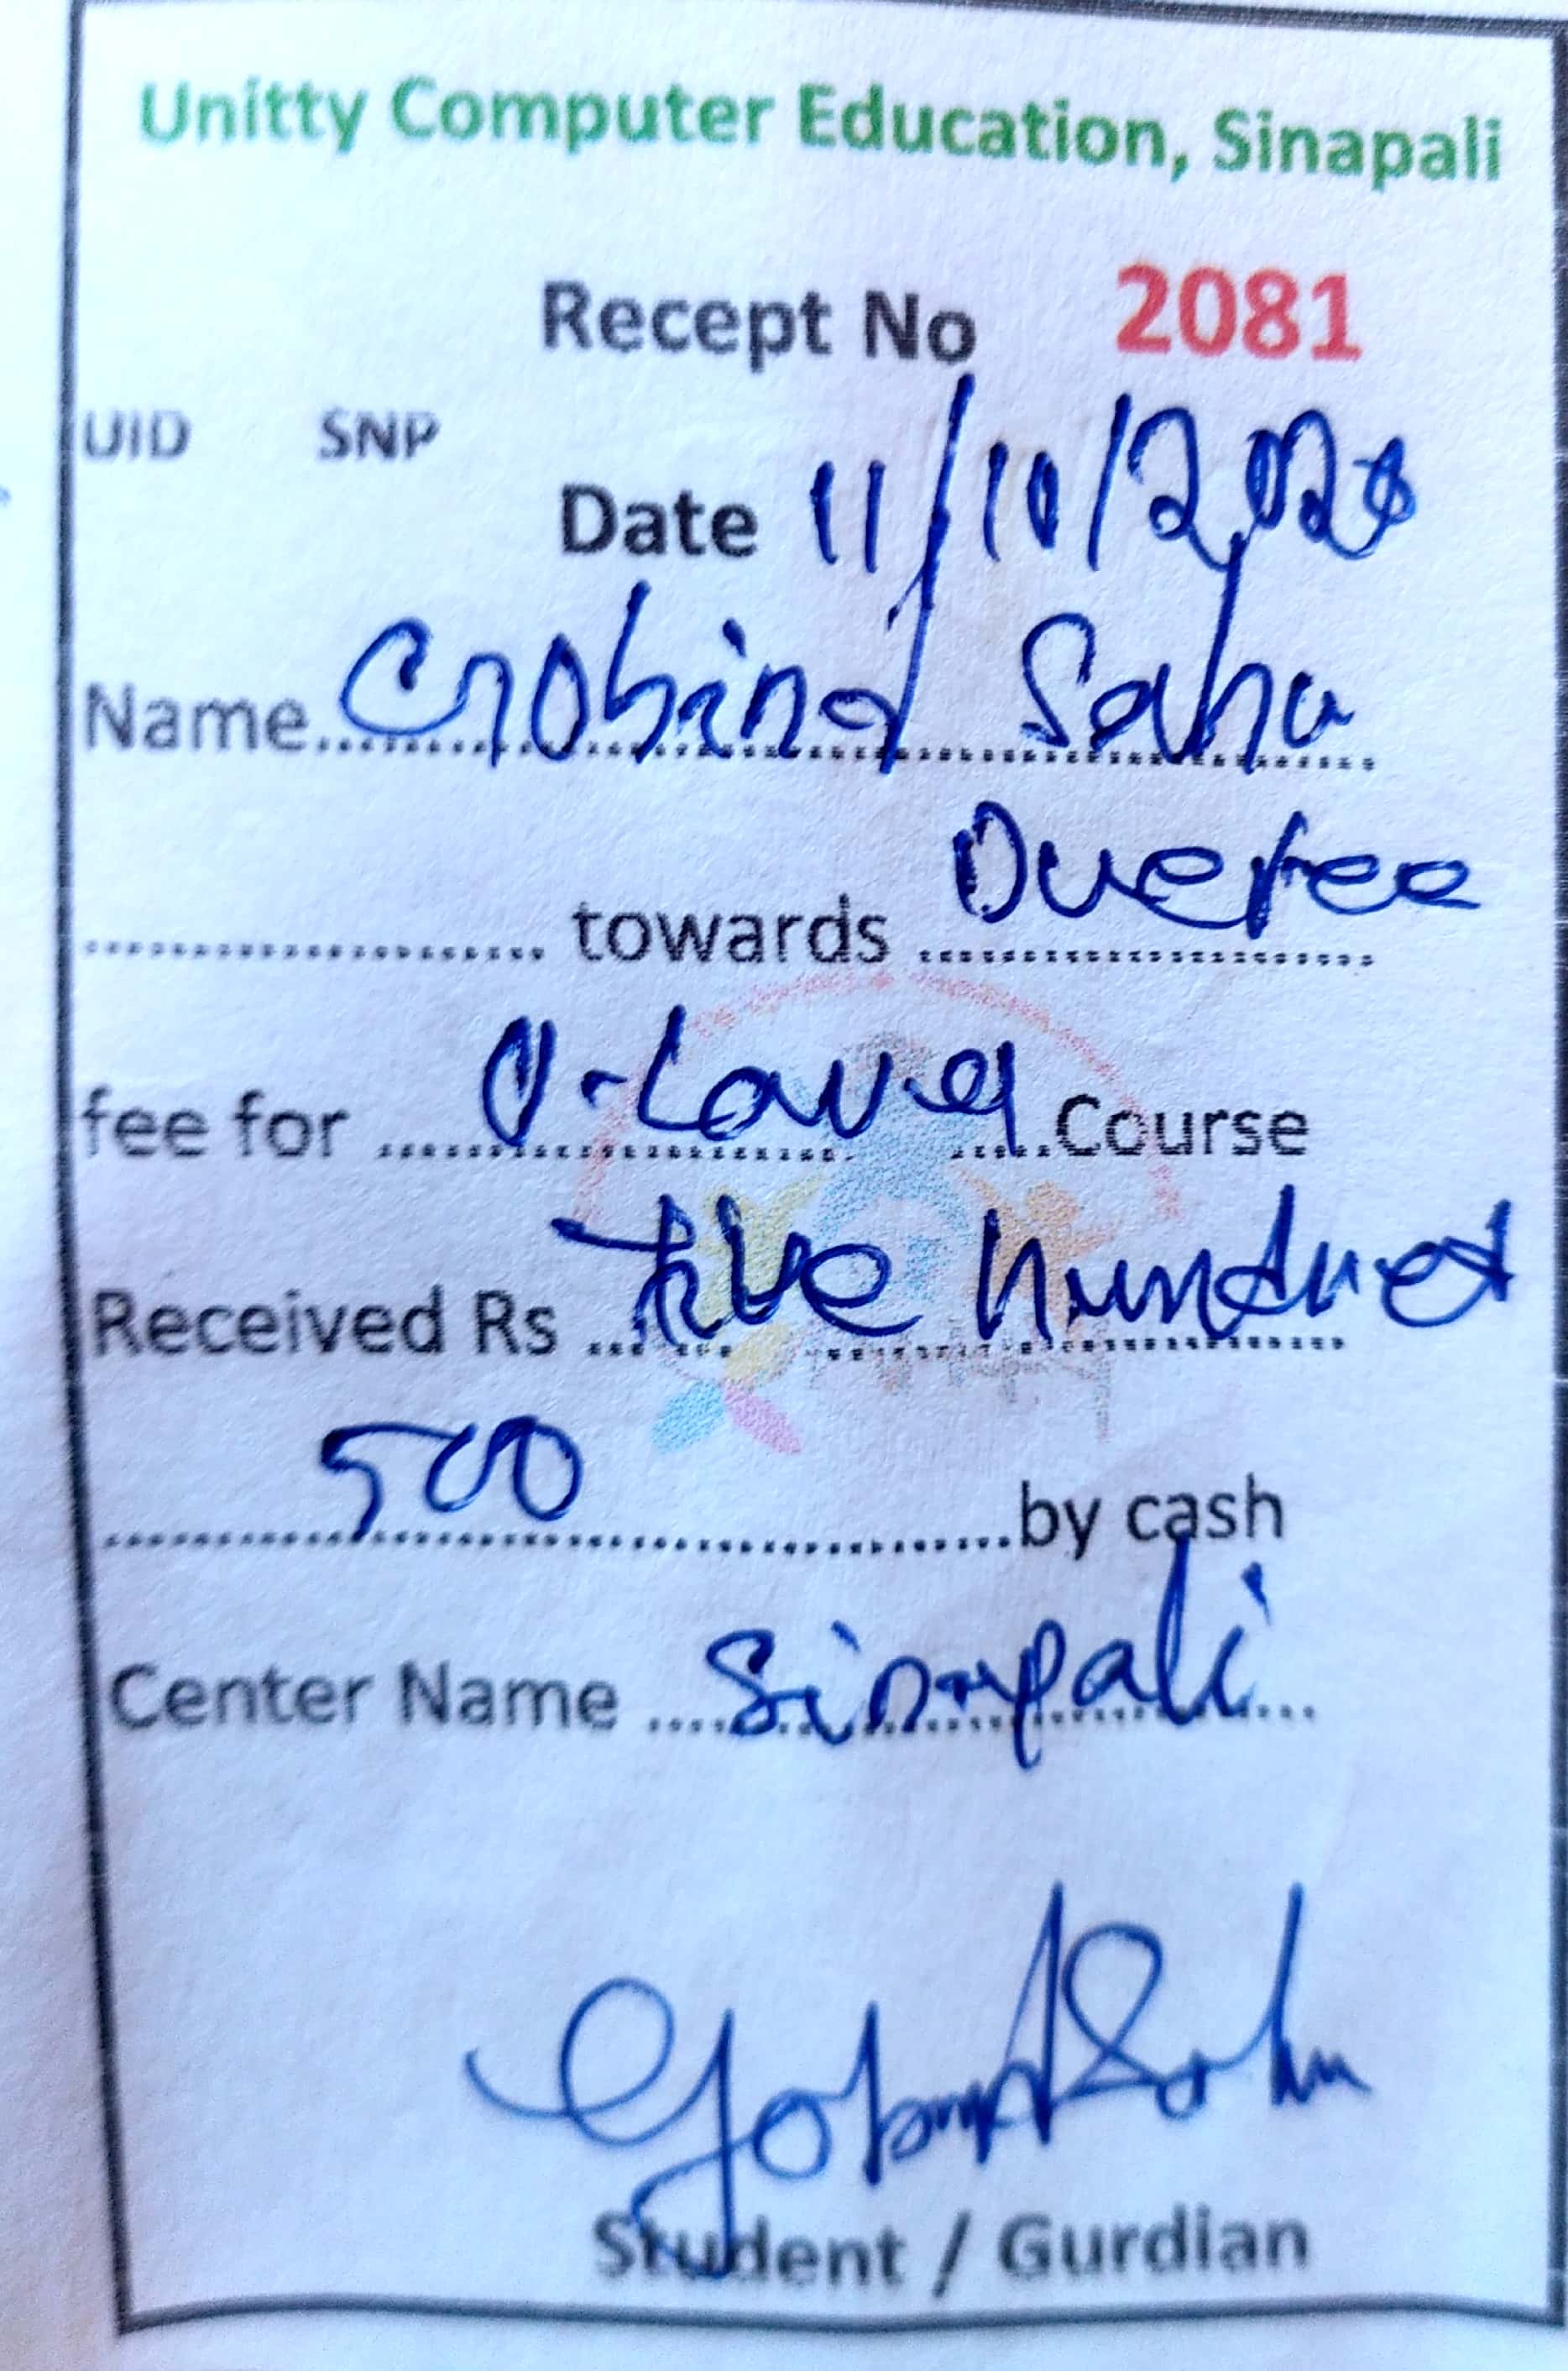 Unitty Computer Education, Sinapali
Recept No 2081
UID SNP
Date 11/10/2020
Name Gobind Sahu
towards Duefee
fee for O-Level Course
Received Rs five hundred
500 by cash
Center Name Sinapali
Gobind Sahu
Student / Gurdian